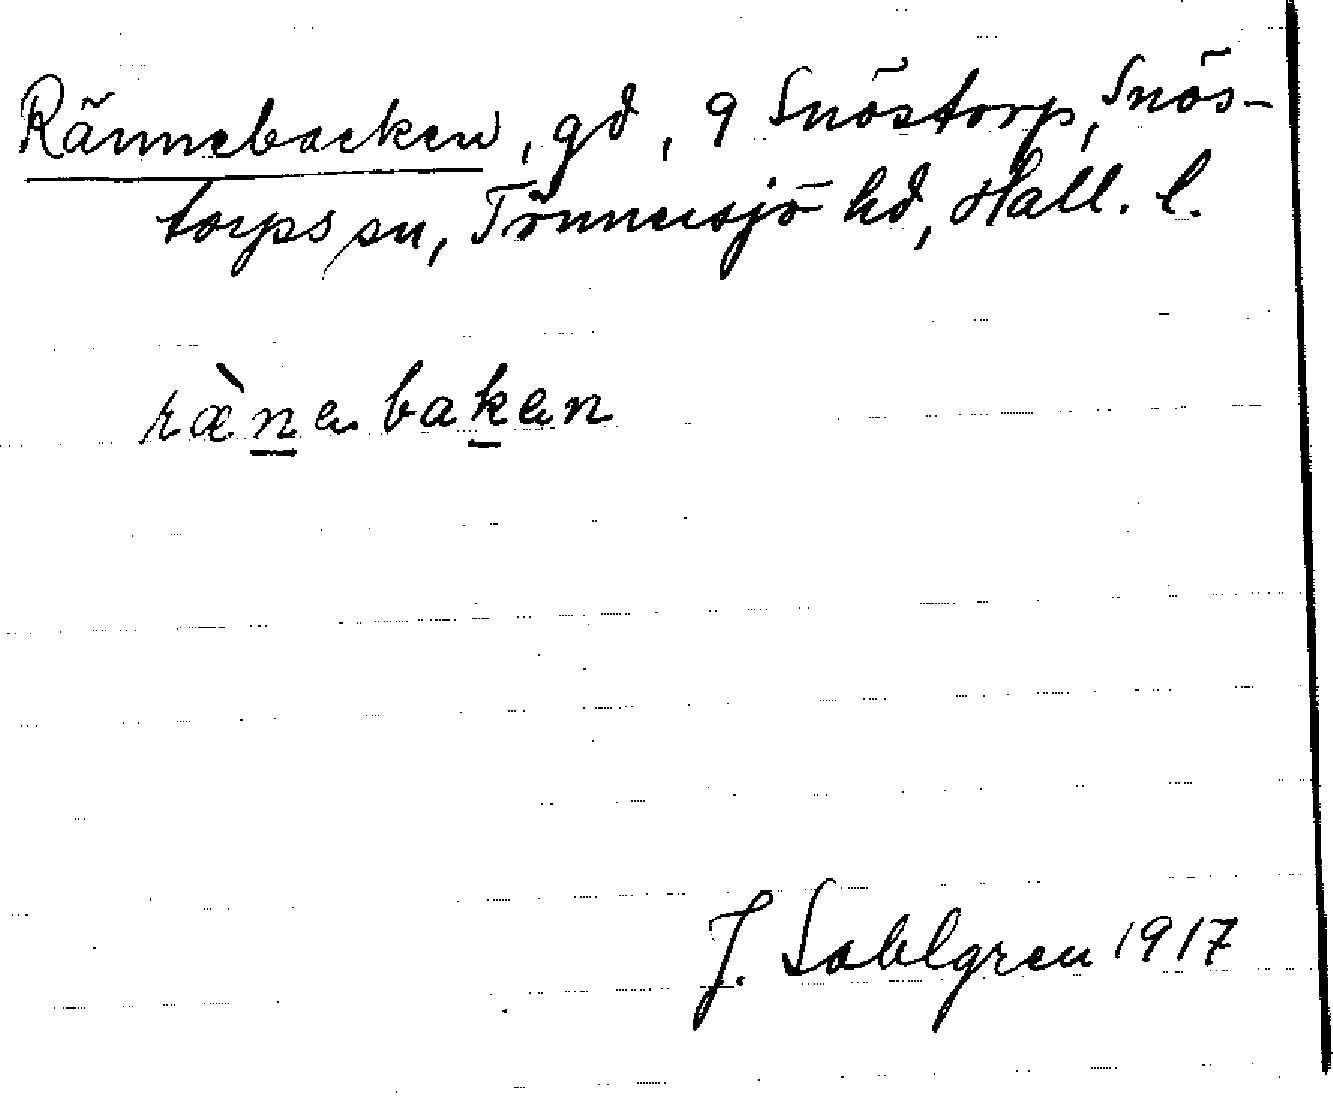 Rännebacken, gd, 9 Snöstorp, Snös-
torps sn, Tönnersjö hd, Hall. l.
ræ̀nəbakən
J. Sahlgren 1917